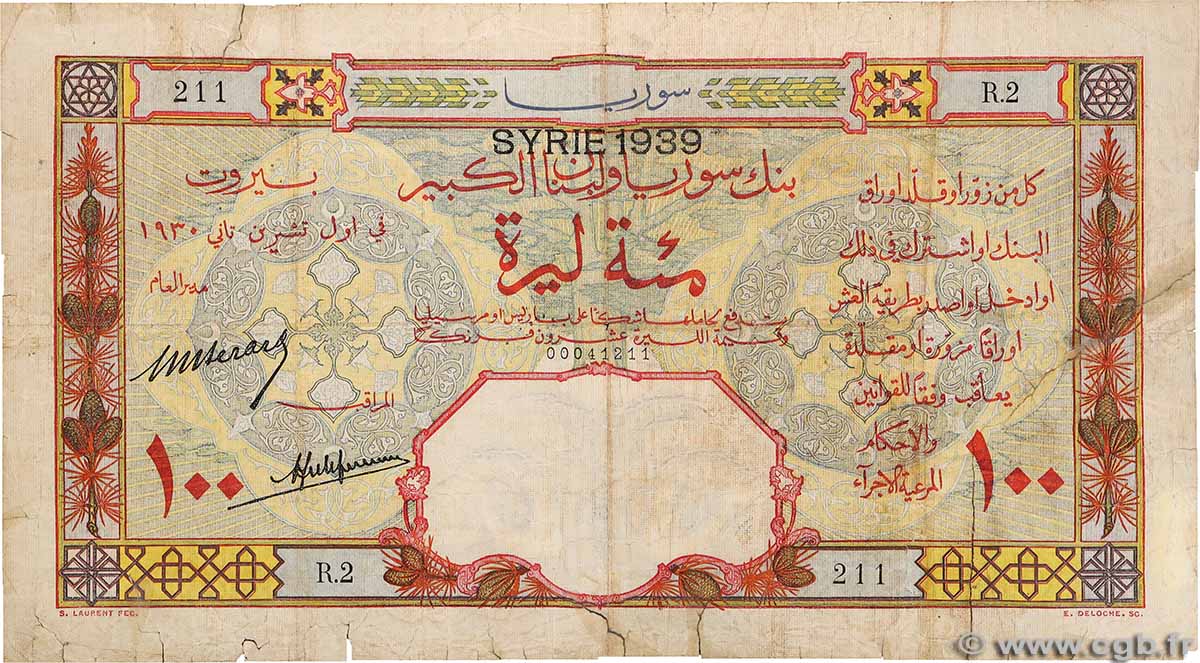 211
سوريا
R.2
SYRIE 1939
بنك سوريا ولبنان الكبير
بيروت
في اول تشرين ثاني ١٩٣٠
مئة ليرة
مدير العام
تدفع بكاملها شكًا على باريس او مرسيليا
وقيمة الليرة عشرون فرنكًا
00041211
المراقب
كل من زوّر او قلّد اوراق
البنك او اشترك في ذلك
او ادخل او اصدر بطريقة الغش
اوراقًا مزورة او مقلدة
يعاقب وفقًا للقوانين
والاحكام
المرعية الاجراء
١٠٠
١٠٠
R.2
211
S. LAURENT FEC.
E. DELOCHE. SC.
© www.cgb.fr